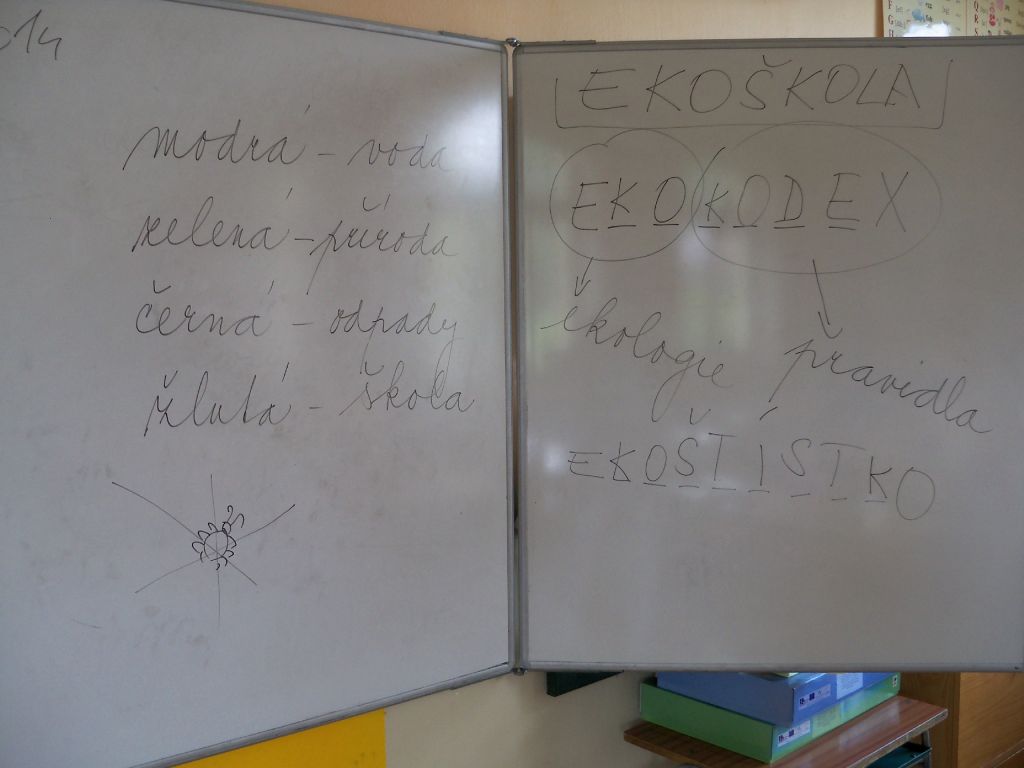 014
modrá – voda
zelená – příroda
černá – odpady
žlutá – škola
EKOŠKOLA
EKOKODEX
ekologie pravidla
EKOŠŤÍSTKO